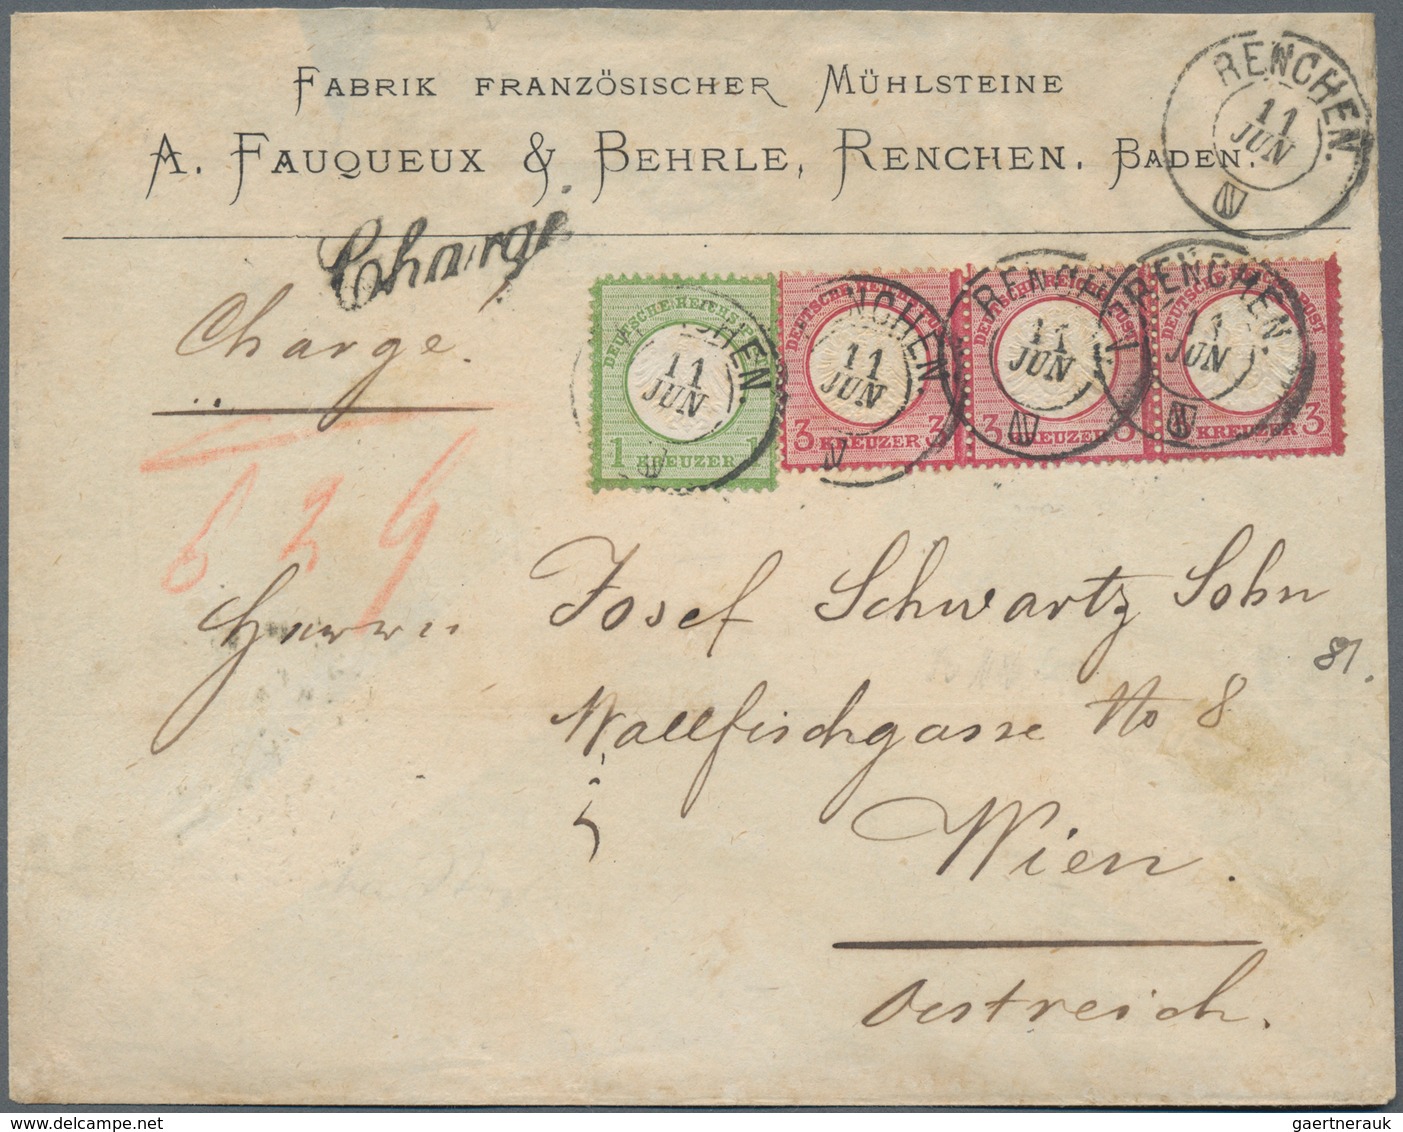 FABRIK FRANZÖSISCHER MÜHLSTEINE
A. FAUQUEUX & BEHRLE, RENCHEN. BADEN.
RENCHEN.
11
JUN
N
Chargé
Chargé.
DEUTSCHE REICHS POST
1 KREUZER 1
RENCHEN.
11
JUN
N
DEUTSCHE REICHS POST
3 KREUZER 3
RENCHEN.
11
JUN
N
DEUTSCHE REICHS POST
3 KREUZER 3
RENCHEN.
11
JUN
N
DEUTSCHE REICHS POST
3 KREUZER 3
RENCHEN.
11
JUN
N
Herrn Josef Schwartz Sohn
81.
Wallfischgasse No 8
Wien.
Oestreich.
gaertnerauk @ delcampe.net